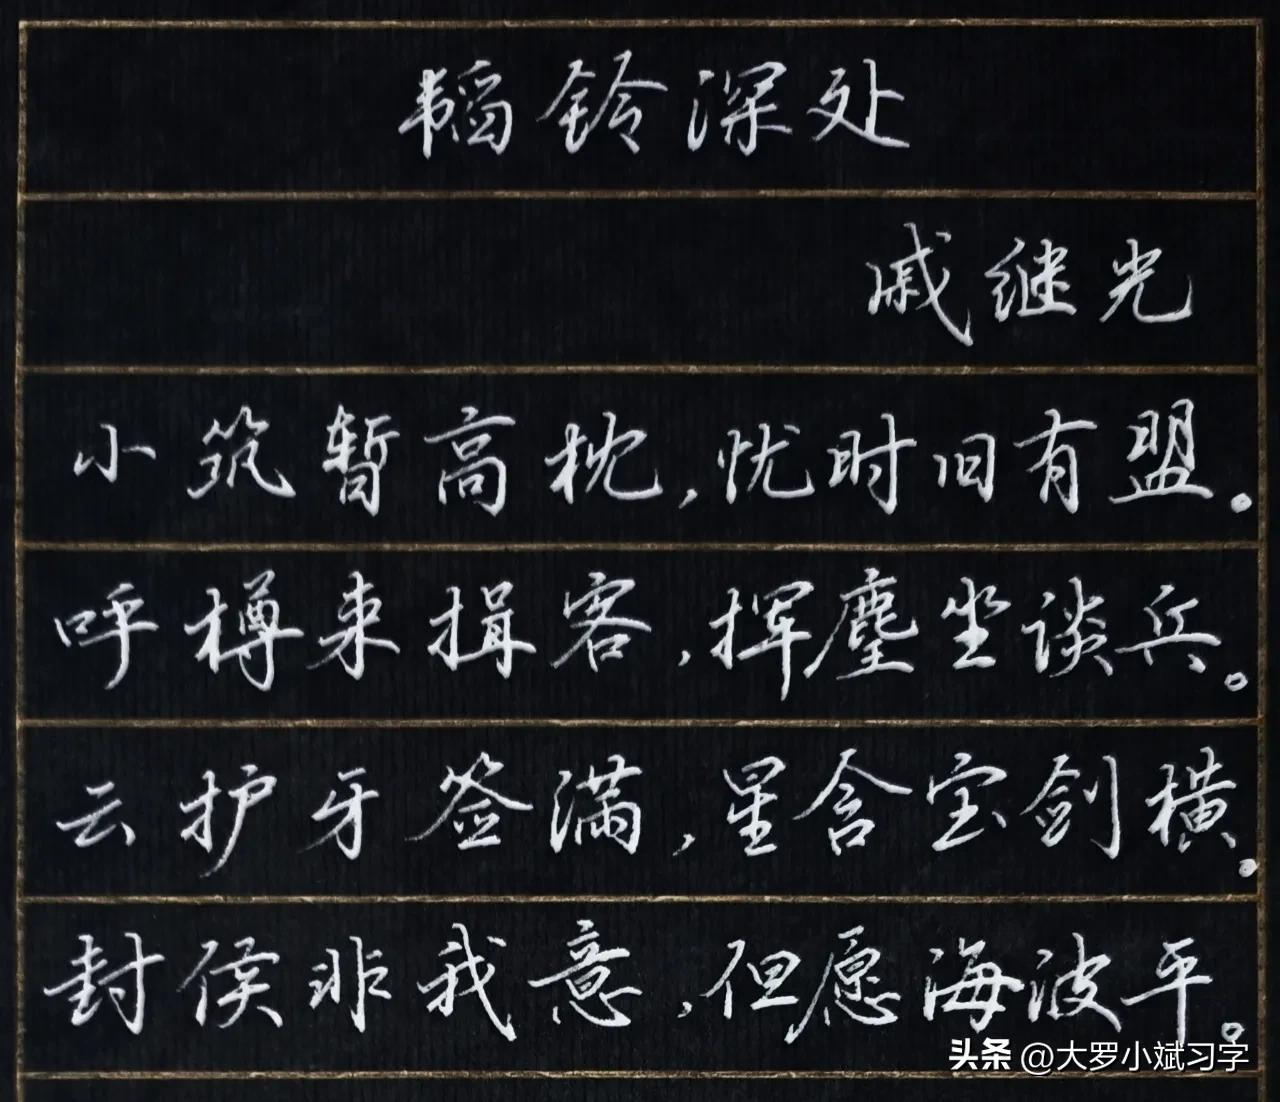 韬铃深处
戚继光
小筑暂高枕，忧时旧有盟。
呼樽来揖客，挥麈坐谈兵。
云护牙签满，星含宝剑横。
封侯非我意，但愿海波平。
头条 @大罗小斌习字